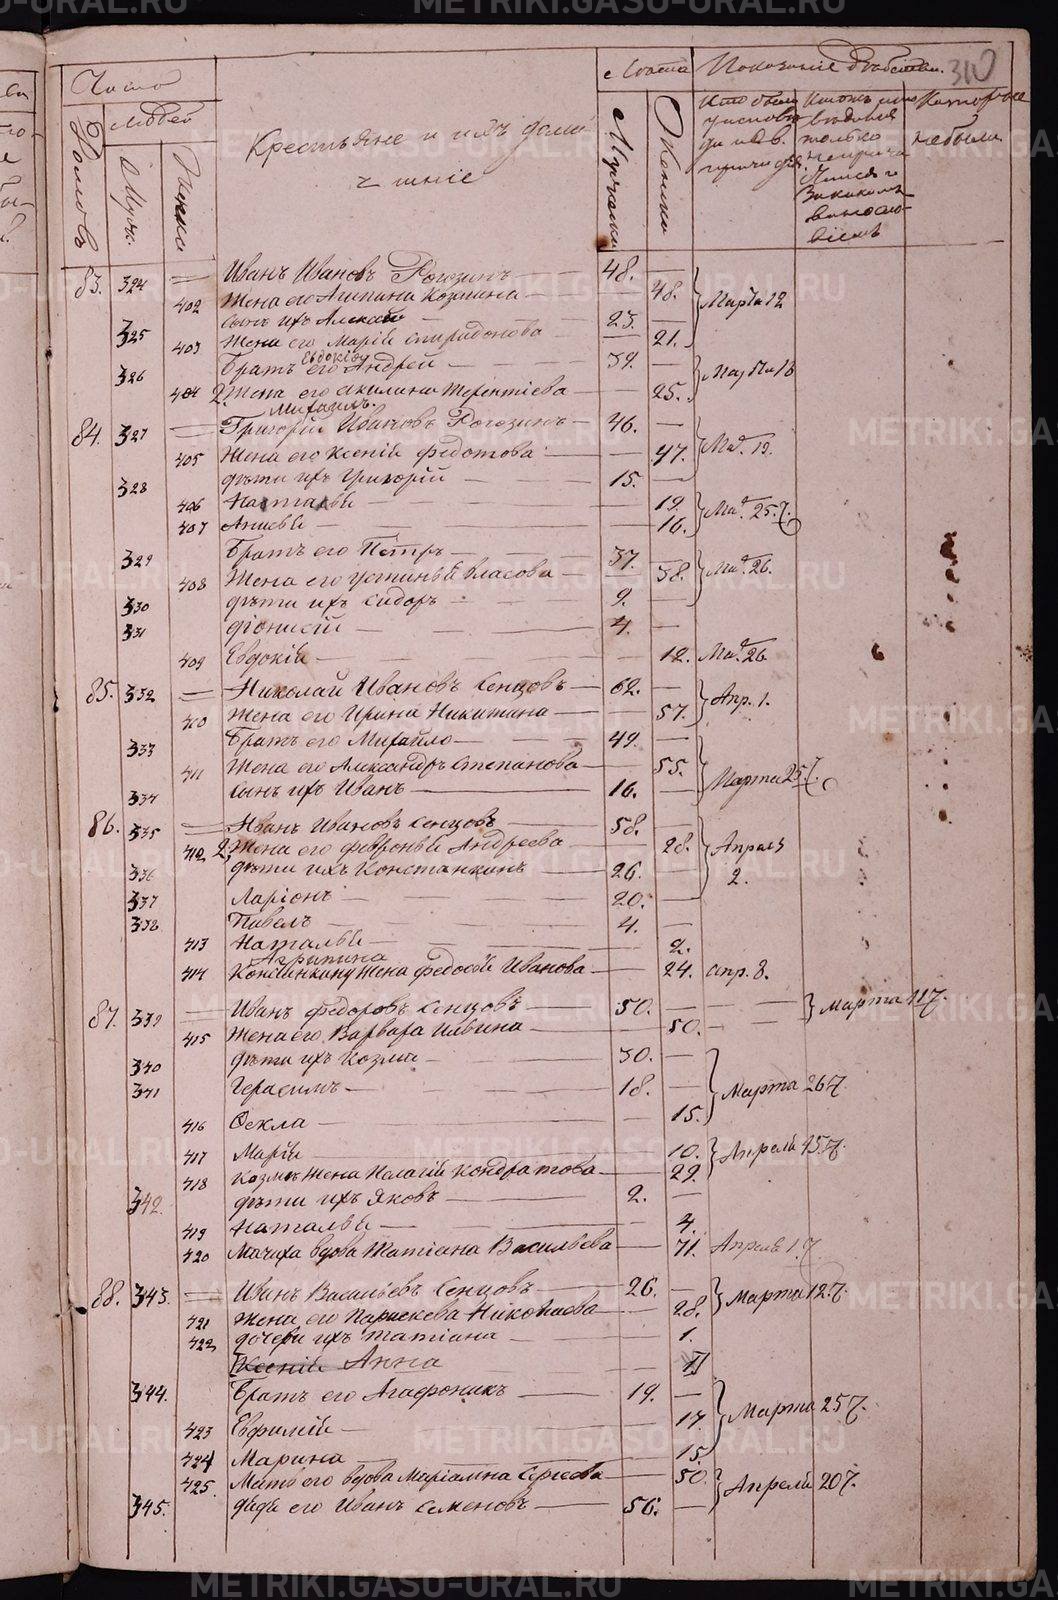 310
Число
Людей
Домовъ
Муж.
Женска
Крестьяне и ихъ дома
чшніе
Лѣта
Мужчины
Женщины
Показаніе бытія
Которые
не были
83. 324 — Иванъ Ивановъ Рогозинъ — 48. —
402 Жена его Агипина Козмина — — 48. Марта 12
325 сынъ ихъ Алексѣй — 23. —
403 Жена его Марія Спиридонова — 21.
Евдокія
326 Братъ его Андрей — 39. —
404 2. Жена его Акилина Терентіева — — 25. Марта 18
Михаилъ.
84. 327 — Григорій Ивановъ Рогозинъ — 46. —
405 Жена его Ксенія Федотова — — 47. Мар. 19.
328 дѣти ихъ Григорій — 15. —
406 Наталья — 19.
407 Анисья — 16. Мар. 25.
329 Братъ его Петръ — 37. —
408 Жена его Устинья Власова — — 38. Мар. 26.
330 дѣти ихъ Сидоръ — 9. —
331 Діонисій — 4. —
409 Евдокія — 12. Мар. 26
85. 332 — Николай Ивановъ Сенцовъ — 62. —
410 Жена его Ирина Никитина — — 57. Апр. 1.
333 Братъ его Михайло — 49. —
411 Жена его Александра Степанова — — 55.
334 сынъ ихъ Иванъ — 16. — Марта 25
86. 335 — Иванъ Ивановъ Сенцовъ — 58. —
412 2. Жена его Февронья Андреева — — 28. Апрѣля
336 дѣти ихъ Константинъ — 26. — 2.
337 Ларіонъ — 20. —
338 Павелъ — 4. —
413 Наталья — 2.
Агрипина
414 Константину жена Федосья Иванова — — 24. Апр. 8.
87. 339 — Иванъ Федоровъ Сенцовъ — 50. — — — Марта 11
415 Жена его Варвара Саввина — — 50. — —
340 дѣти ихъ Козма — 30. —
341 Герасимъ — 18. — Марта 26
416 Ѳекла — 15.
417 Марія — 10. Апрѣля 15
418 Козмѣ жена Пелагія Кондратова — — 29.
342. дѣти ихъ Яковъ — 2. —
419 Наталья — 4.
420 Мачиха вдова Татіана Васильева — — 71. Апрѣля 1.
88. 343. — Иванъ Васильевъ Сенцовъ — 26. —
421 Жена его Параскева Николаева — — 28. Марта 12
422 дочери ихъ Татіана — 1.
Ксенія Анна
344. Братъ его Агафоникъ — 19. —
423 Евфимія — 17 Марта 25
424 Марина — 15.
425. Мать его вдова Маріамна Сергѣева — — 50. Апрѣля 20
345. дядя его Иванъ Семеновъ — 56. —
METRIKI.GASO-URAL.RU